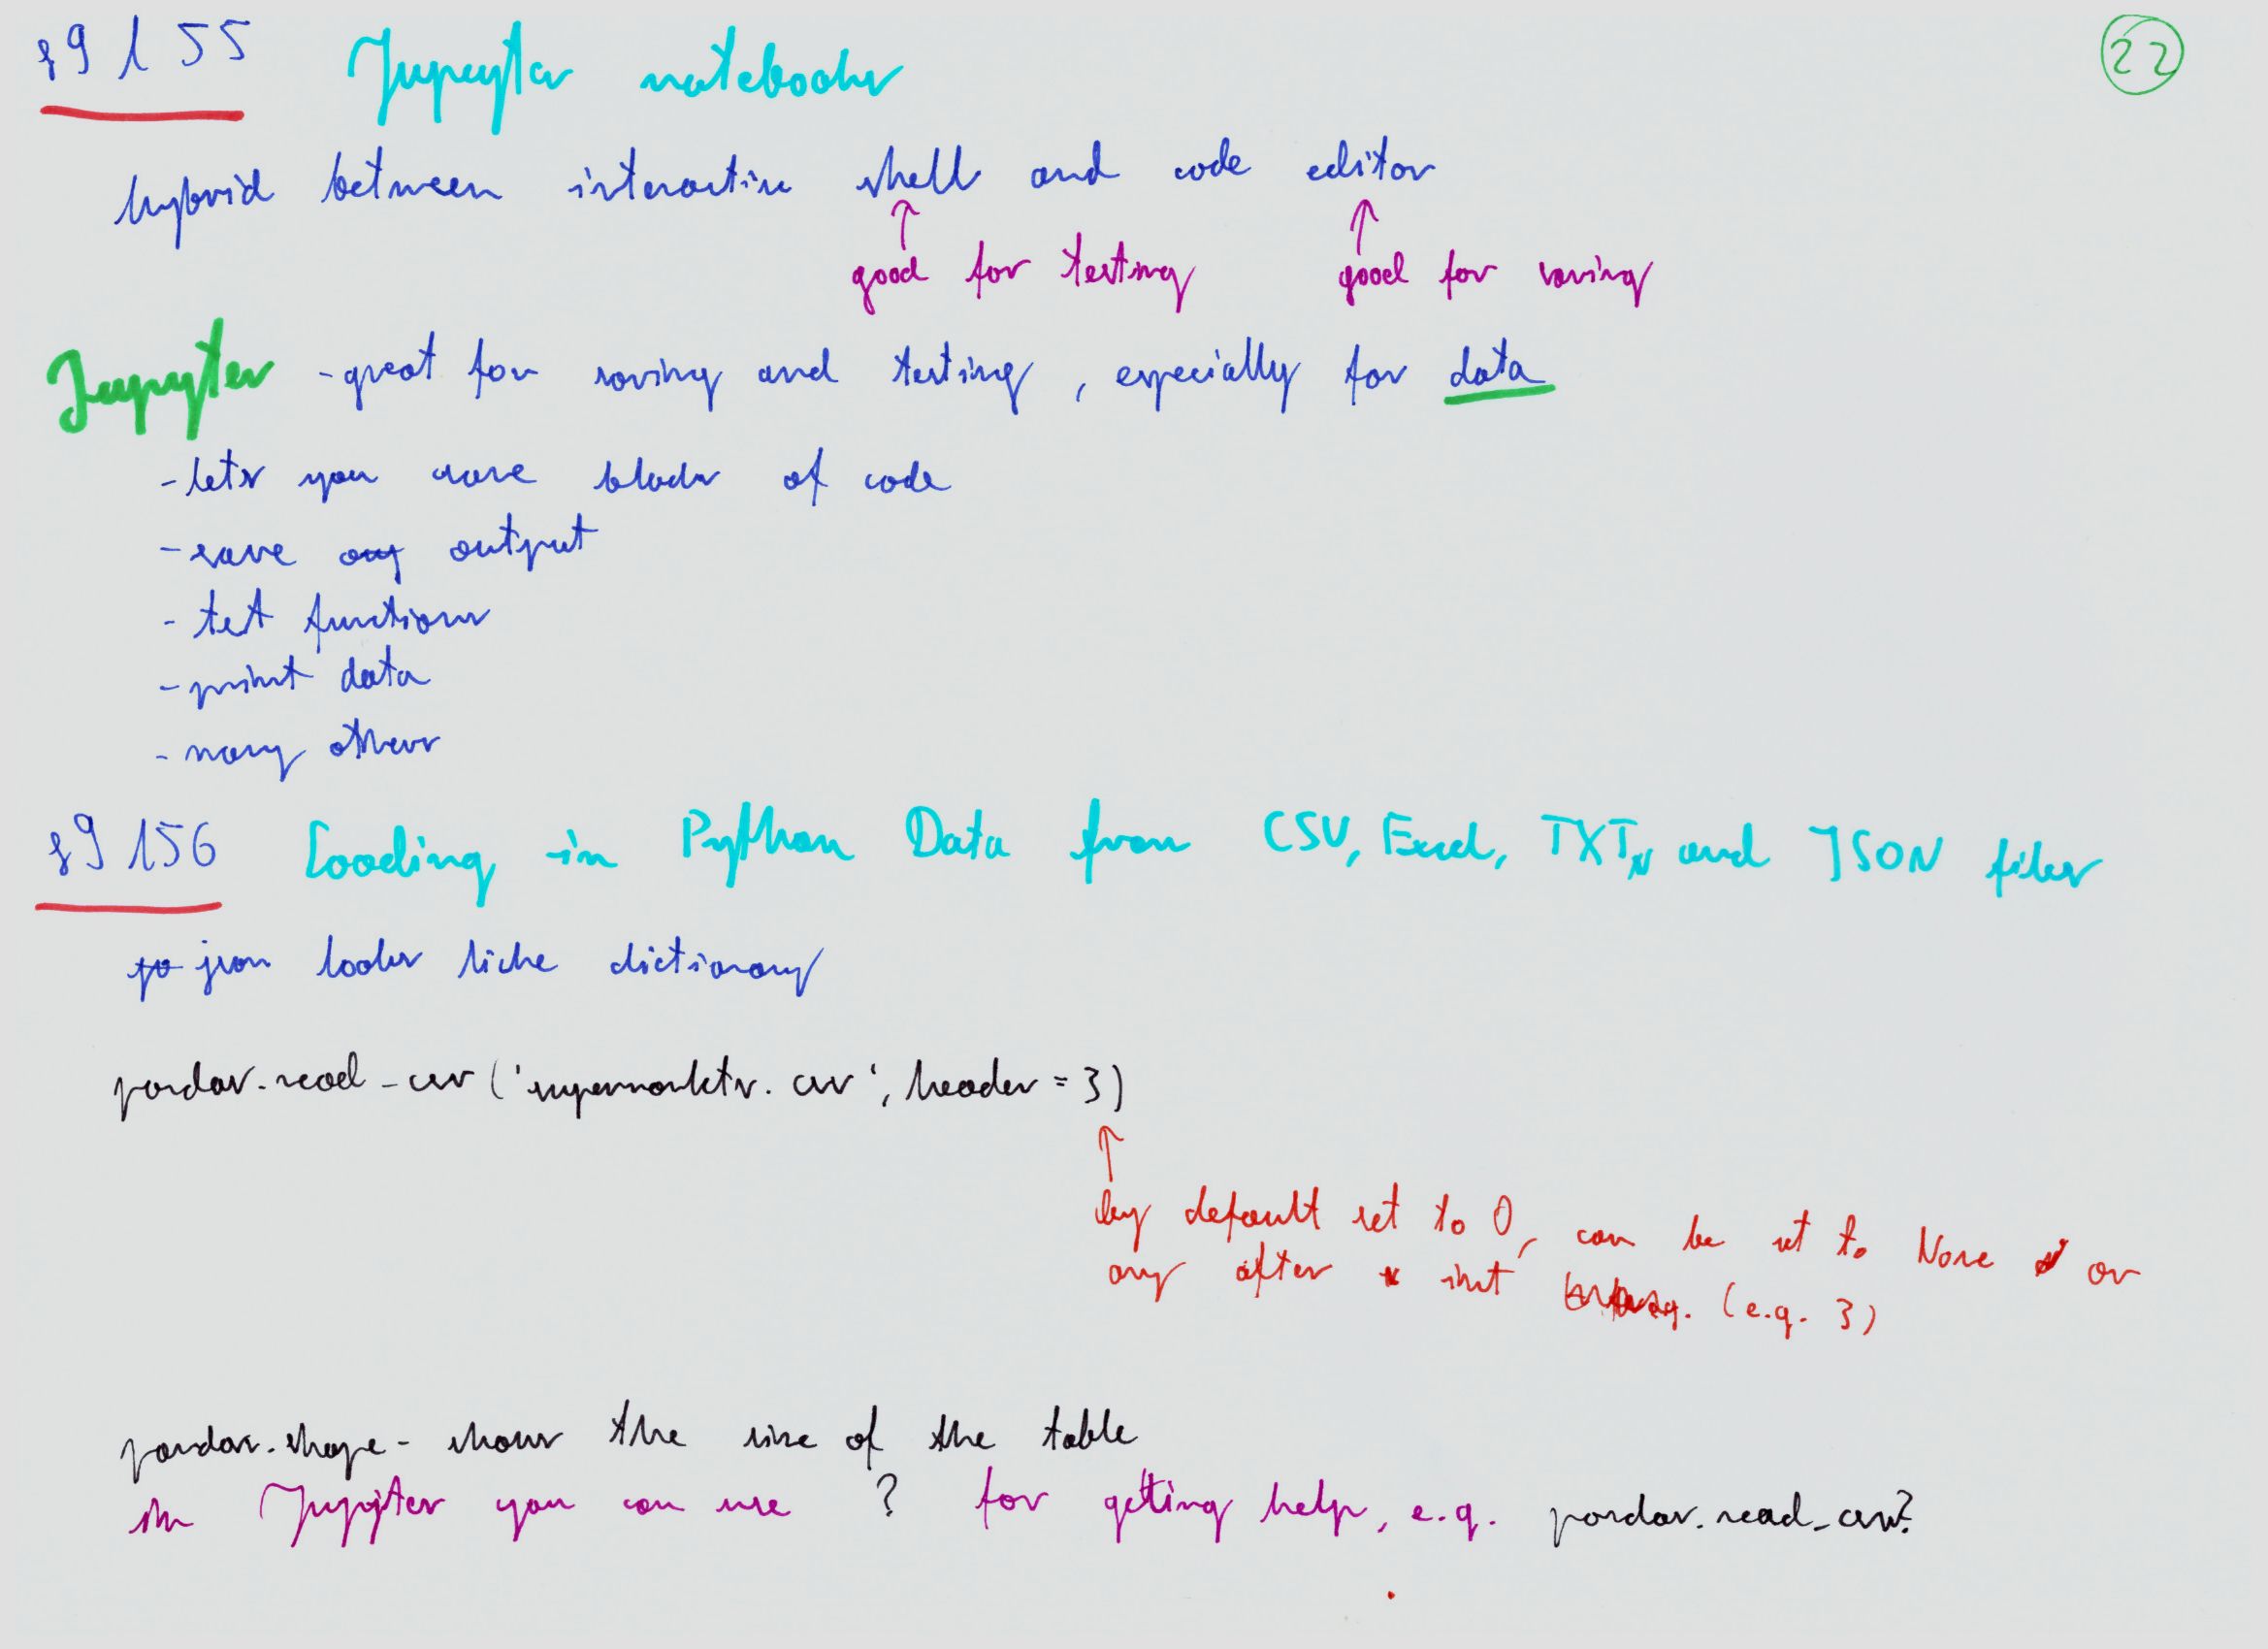 §9 155 Jupyter notebooks
22
hybrid between interactive shell and code editor
↑ ↑
good for testing good for saving
Jupyter - great for saving and testing, especially for data
- lets you save blocks of code
- save any output
- test functions
- print data
- many others
§9 156 Loading in Python Data from CSV, Excel, TXT, and JSON files
json looks like dictionary
pandas.read_csv('supermarkets.csv', header = 3)
↑
by default set to 0, can be set to None or
any after int (e.g. 3)
pandas.shape - shows the size of the table
in Jupyter you can use ? for getting help, e.g. pandas.read_csv?